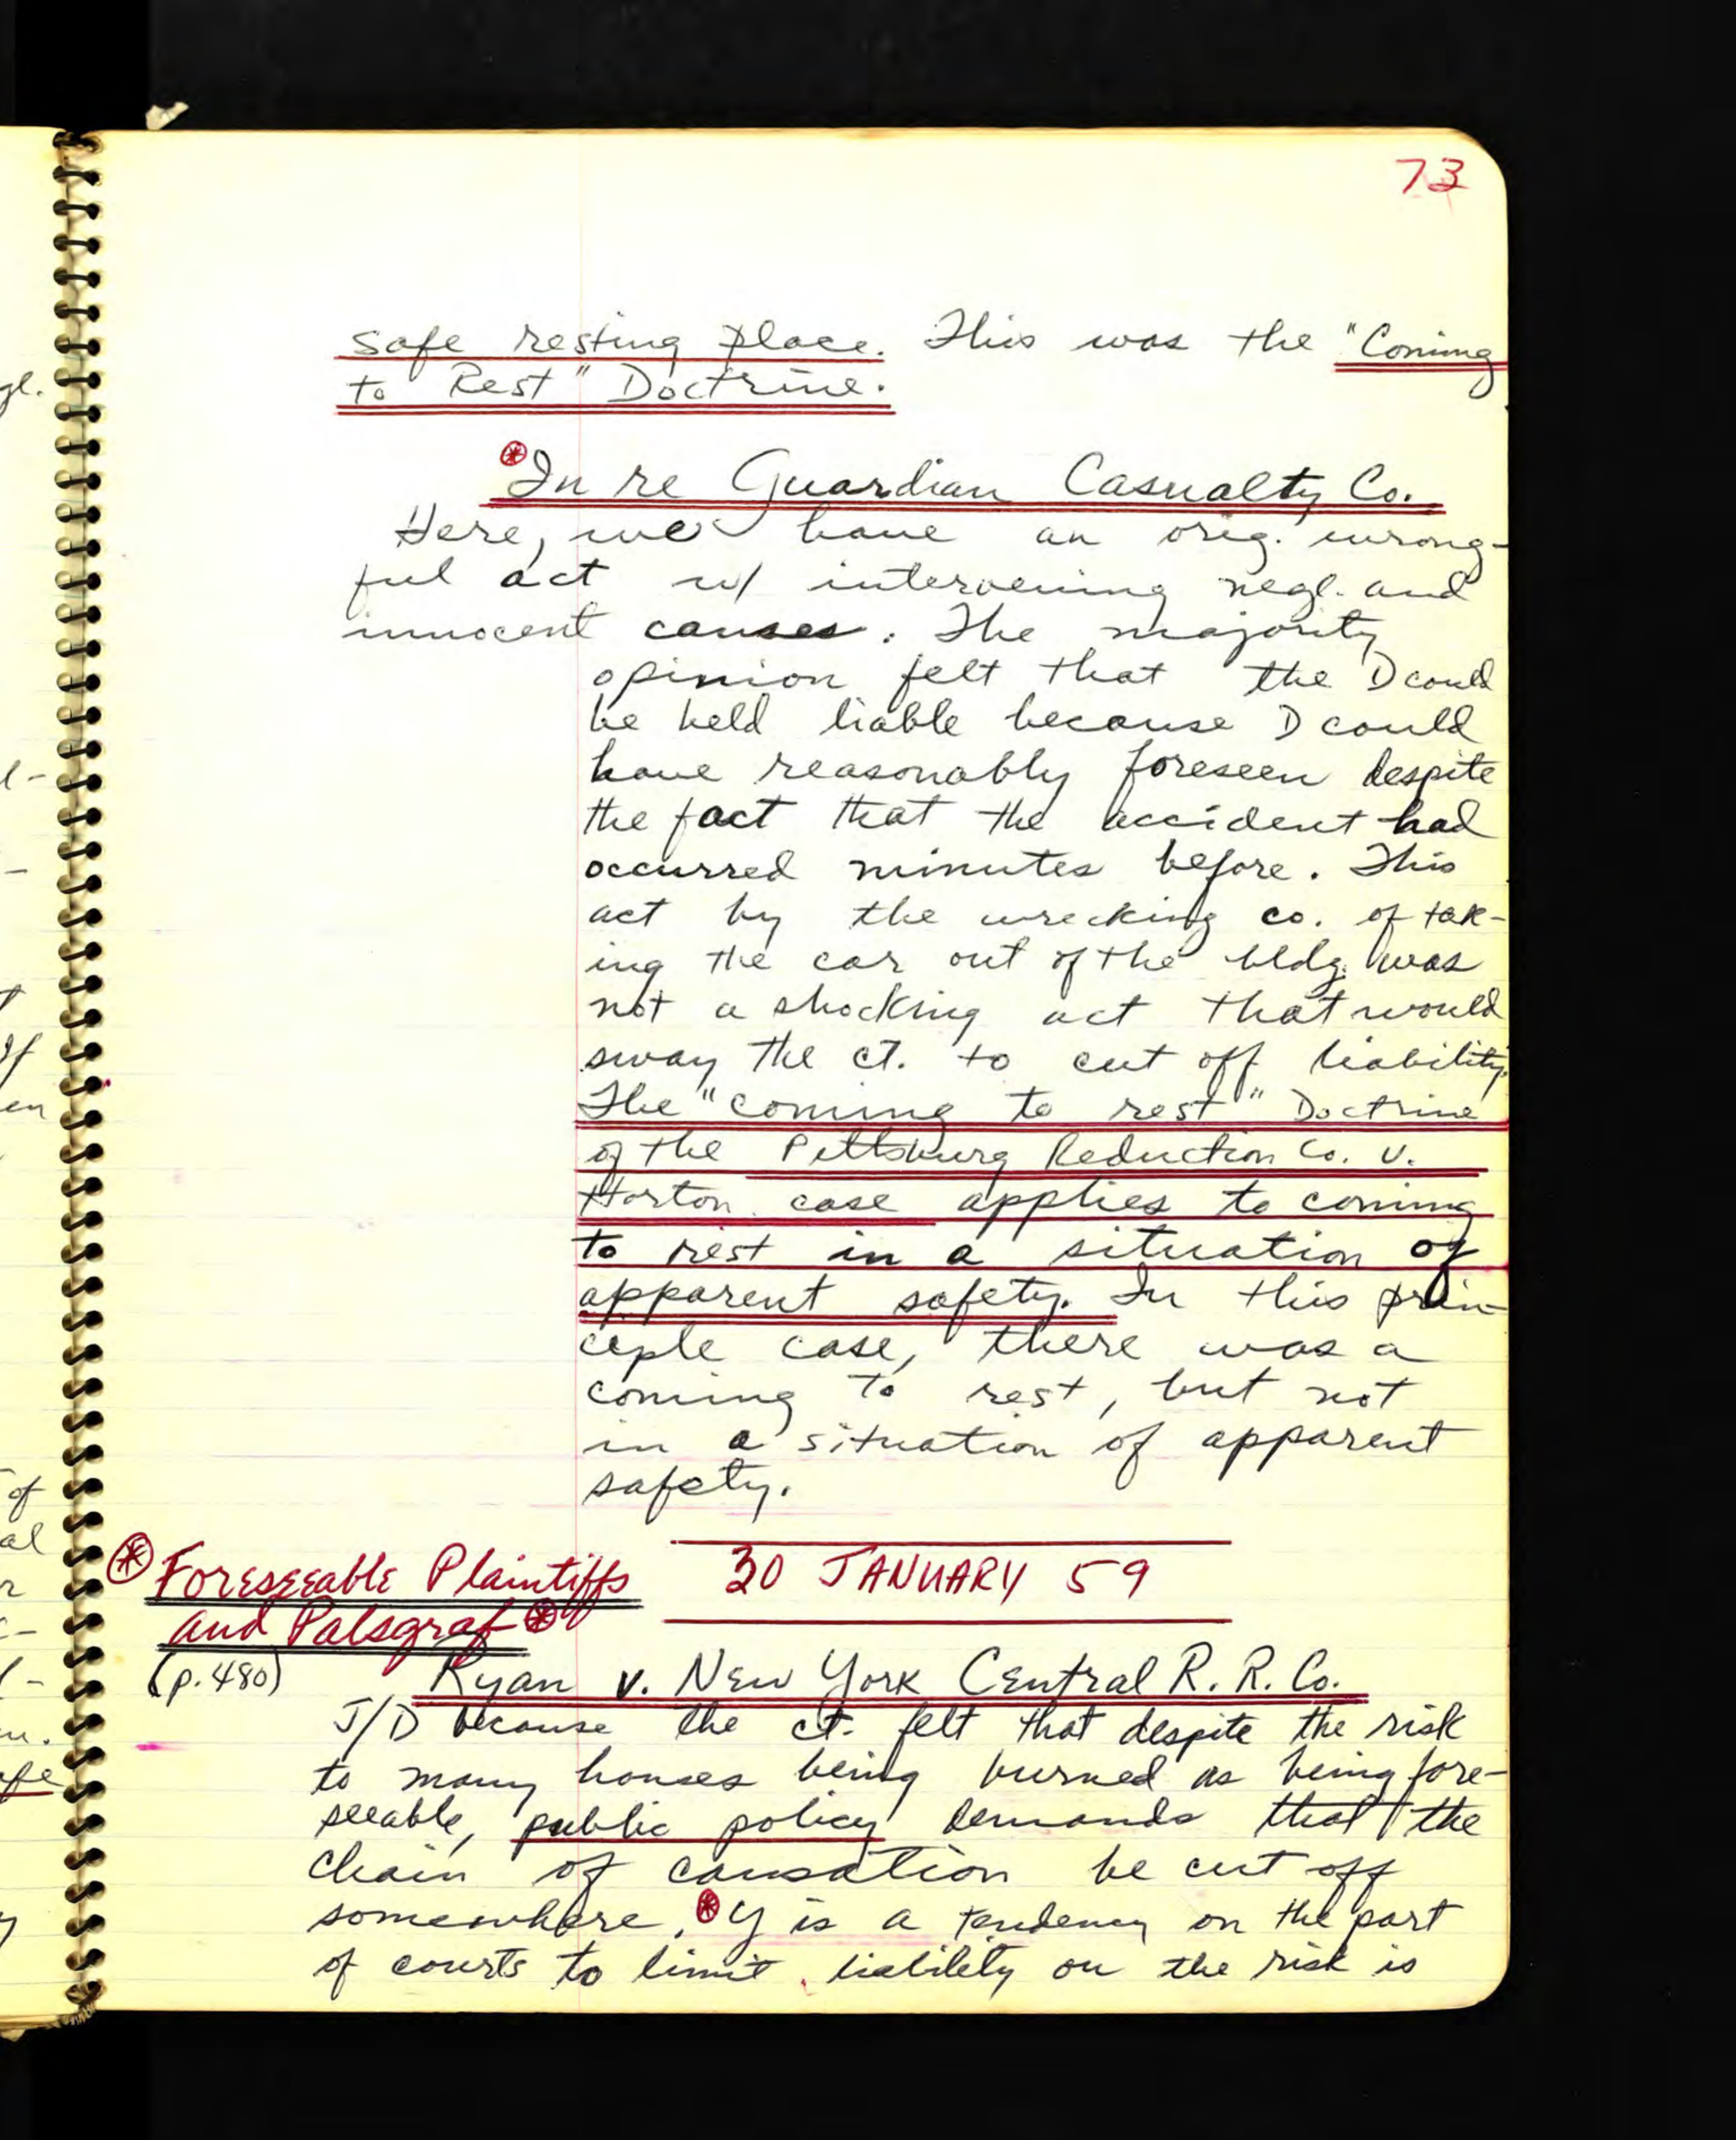 73
safe resting place. This was the "Coming
to Rest" Doctrine.
In re Guardian Casualty Co.
Here, we have an orig. wrong-
ful act w/ intervening negl. and
innocent causes. The majority
opinion felt that the D could
be held liable because D could
have reasonably foreseen despite
the fact that the accident had
occurred minutes before. This
act by the wrecking co. of tak-
ing the car out of the bldg. was
not a shocking act that would
sway the ct. to cut off liability.
The "coming to rest" Doctrine
of the Pittsburg Reduction Co. v.
Horton case applies to coming
to rest in a situation of
apparent safety. In this prin-
ciple case, there was a
coming to rest, but not
in a situation of apparent
safety.
Foreseeable Plaintiffs
and Palsgraf
30 JANUARY 59
(p. 480)
Ryan v. New York Central R. R. Co.
J/D because the ct. felt that despite the risk
to many houses being burned as being fore-
seeable, public policy demands that the
chain of causation be cut off
somewhere. Y is a tendency on the part
of courts to limit liability on the risk is
gl.
l-
If
en
of
al
r
c-
l-
u.
afe
y